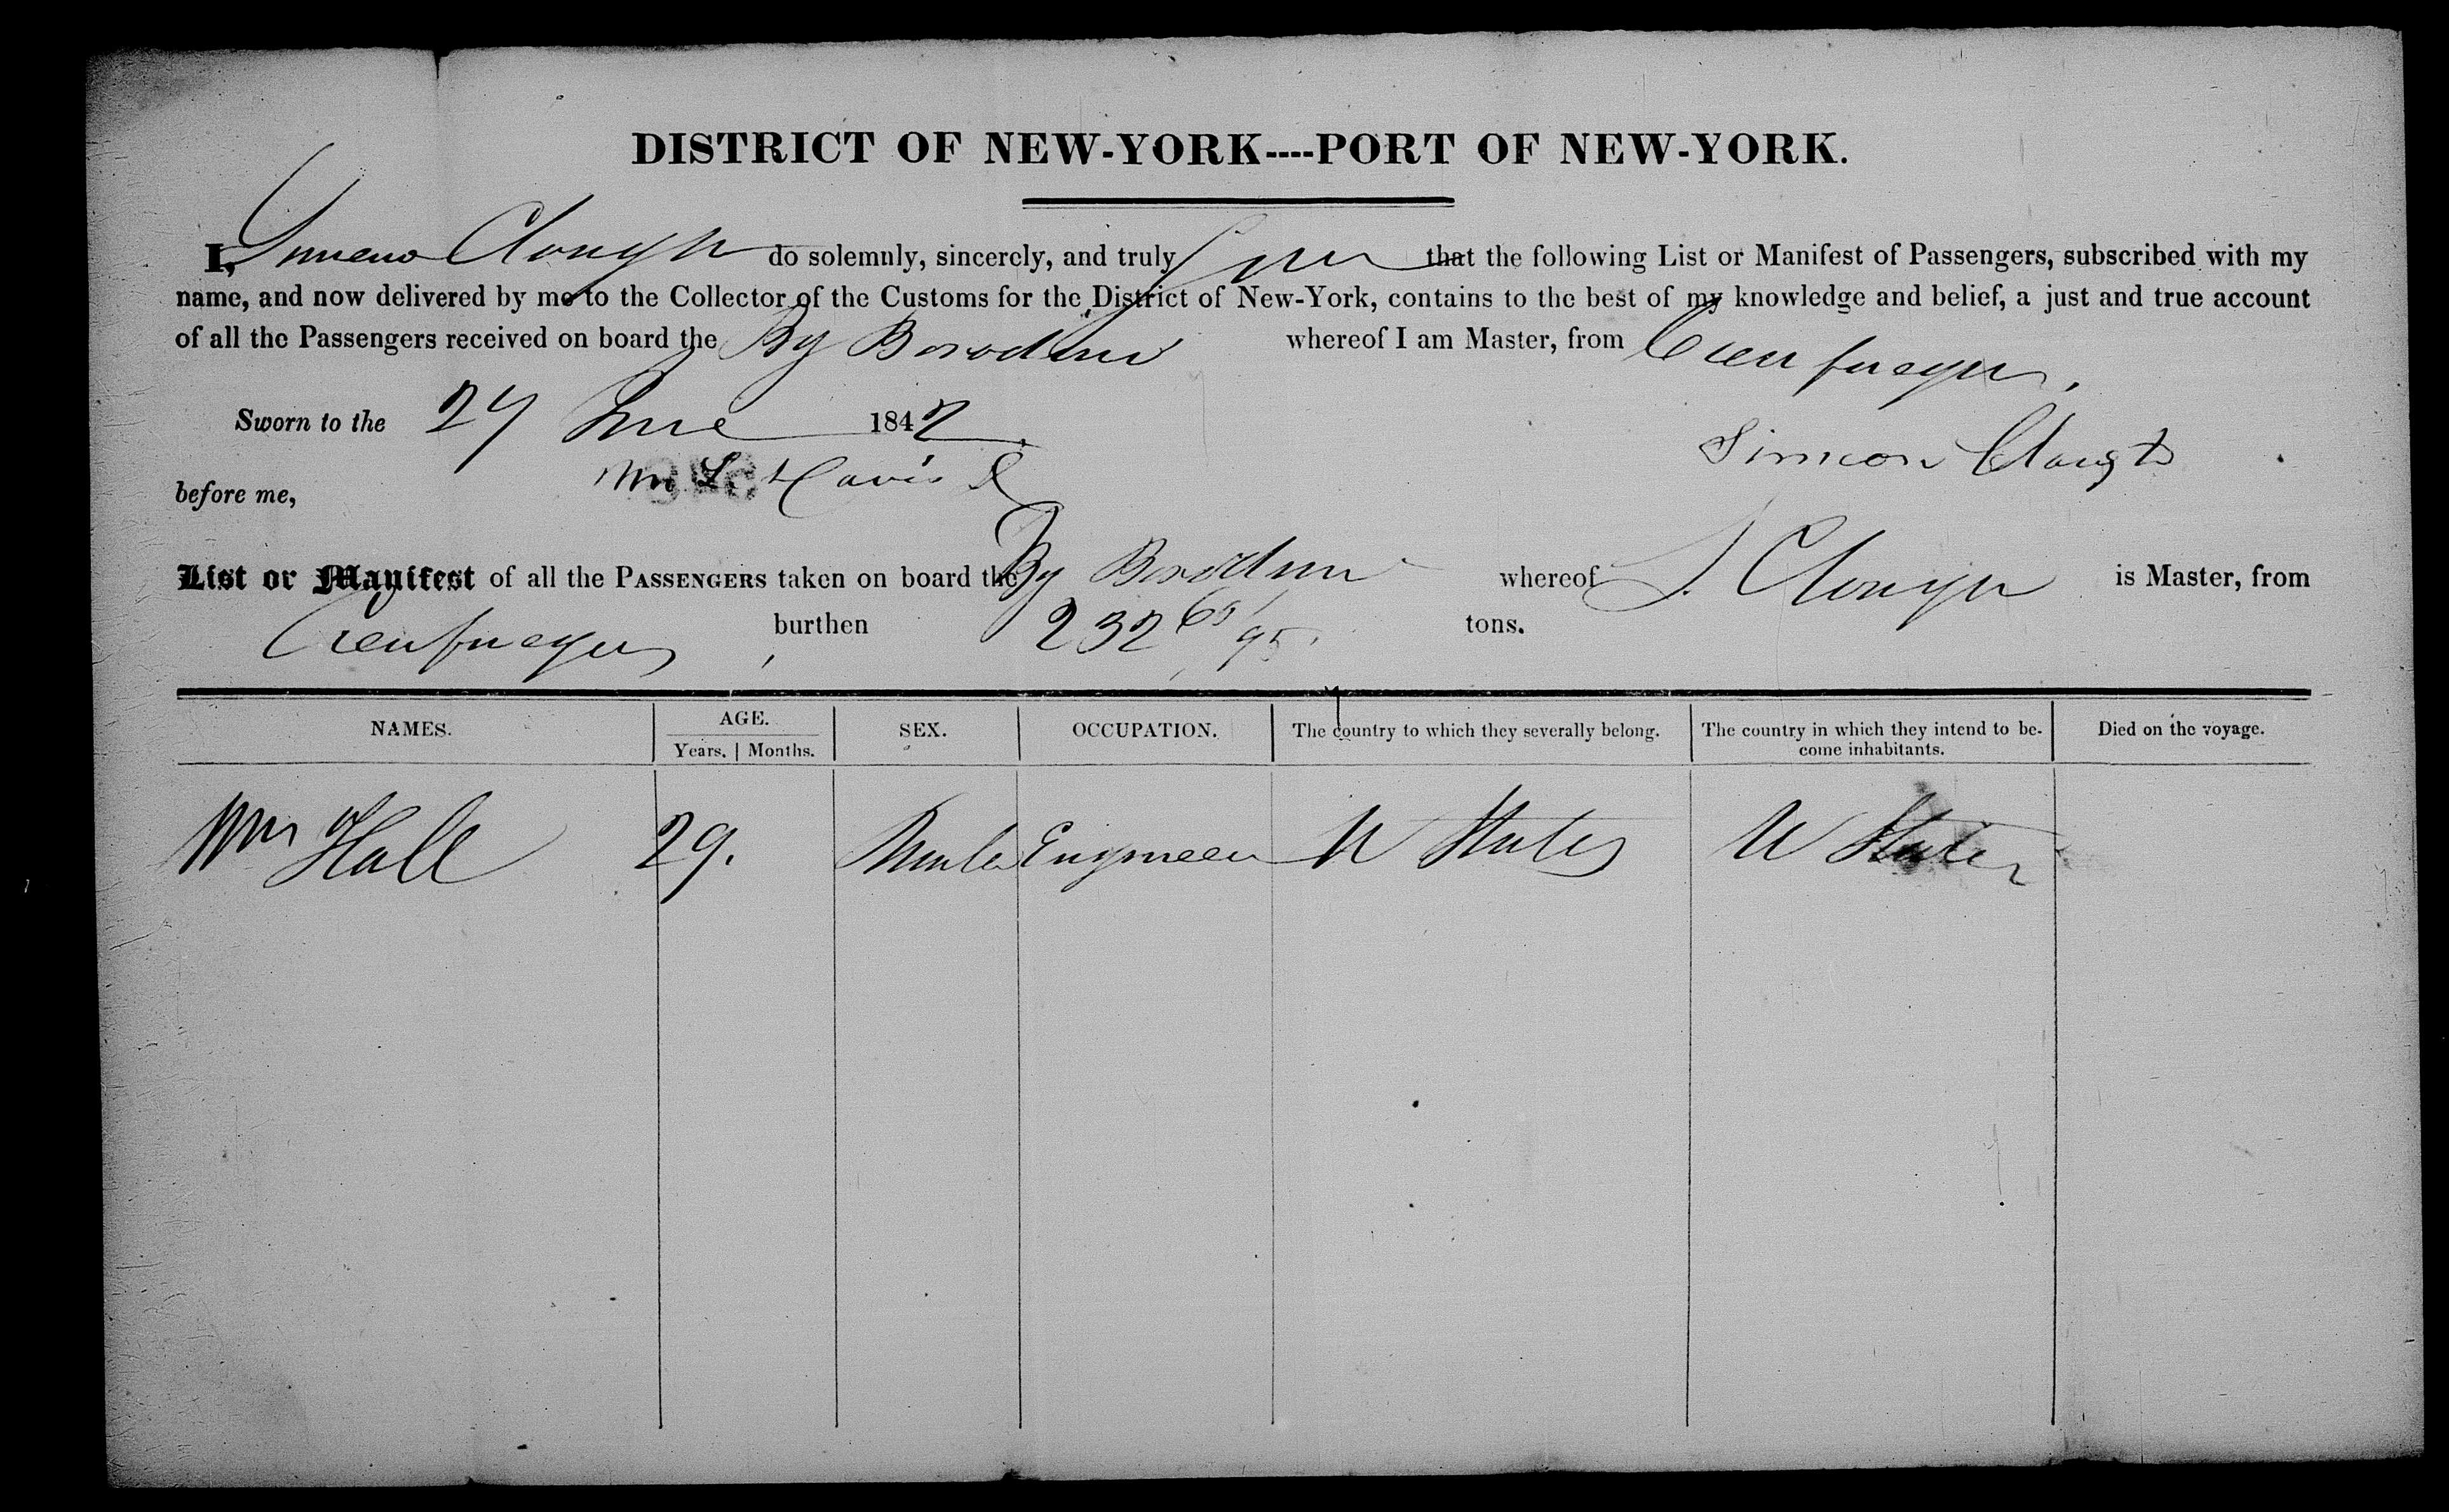 DISTRICT OF NEW-YORK----PORT OF NEW-YORK.
I, Simeon Clough do solemnly, sincerely, and truly that the following List or Manifest of Passengers, subscribed with my
name, and now delivered by me to the Collector of the Customs for the District of New-York, contains to the best of my knowledge and belief, a just and true account
of all the Passengers received on board the Bg Borodino whereof I am Master, from Cienfuegos,
Sworn to the 27 June 1842
Simeon Clough
before me,
List or Manifest of all the PASSENGERS taken on board the Bg Borodino whereof S. Clough is Master, from
Cienfuegos, burthen 232 /95 tons.
NAMES. AGE. SEX. OCCUPATION. The country to which they severally belong. The country in which they intend to be- Died on the voyage.
Years. Months. come inhabitants.
Wm Hall 29. Male Engineer U States U States